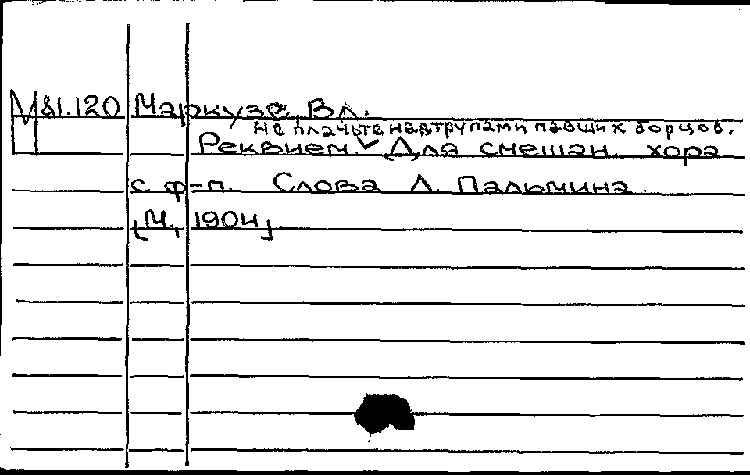 М81.120 Маркузе, Вл.
Не плачьте над трупами павших борцов.
Реквием. Для смешан. хора
с ф-п. Слова Л. Пальмина
[М., 1904]